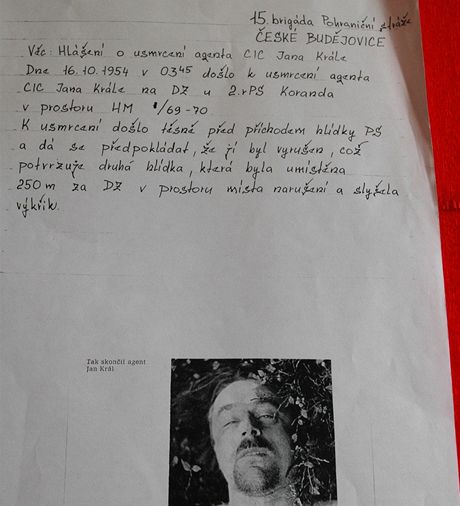 15. brigáda Pohraniční stráže
ČESKÉ BUDĚJOVICE
Věc: Hlášení o usmrcení agenta CIC Jana Krále
Dne 16.10.1954 v 03⁴⁵ došlo k usmrcení agenta
CIC Jana Krále na DZ u 2.rPS Koranda
v prostoru HM /69-70
K usmrcení došlo těsně před příchodem hlídky PS
a dá se předpokládat, že jí byl vyrušen, což
potvrzuje druhá hlídka, která byla umístěna
250 m za DZ v prostoru místa narušení a slyšela
výkřik.
Tak skončil agent
Jan Král